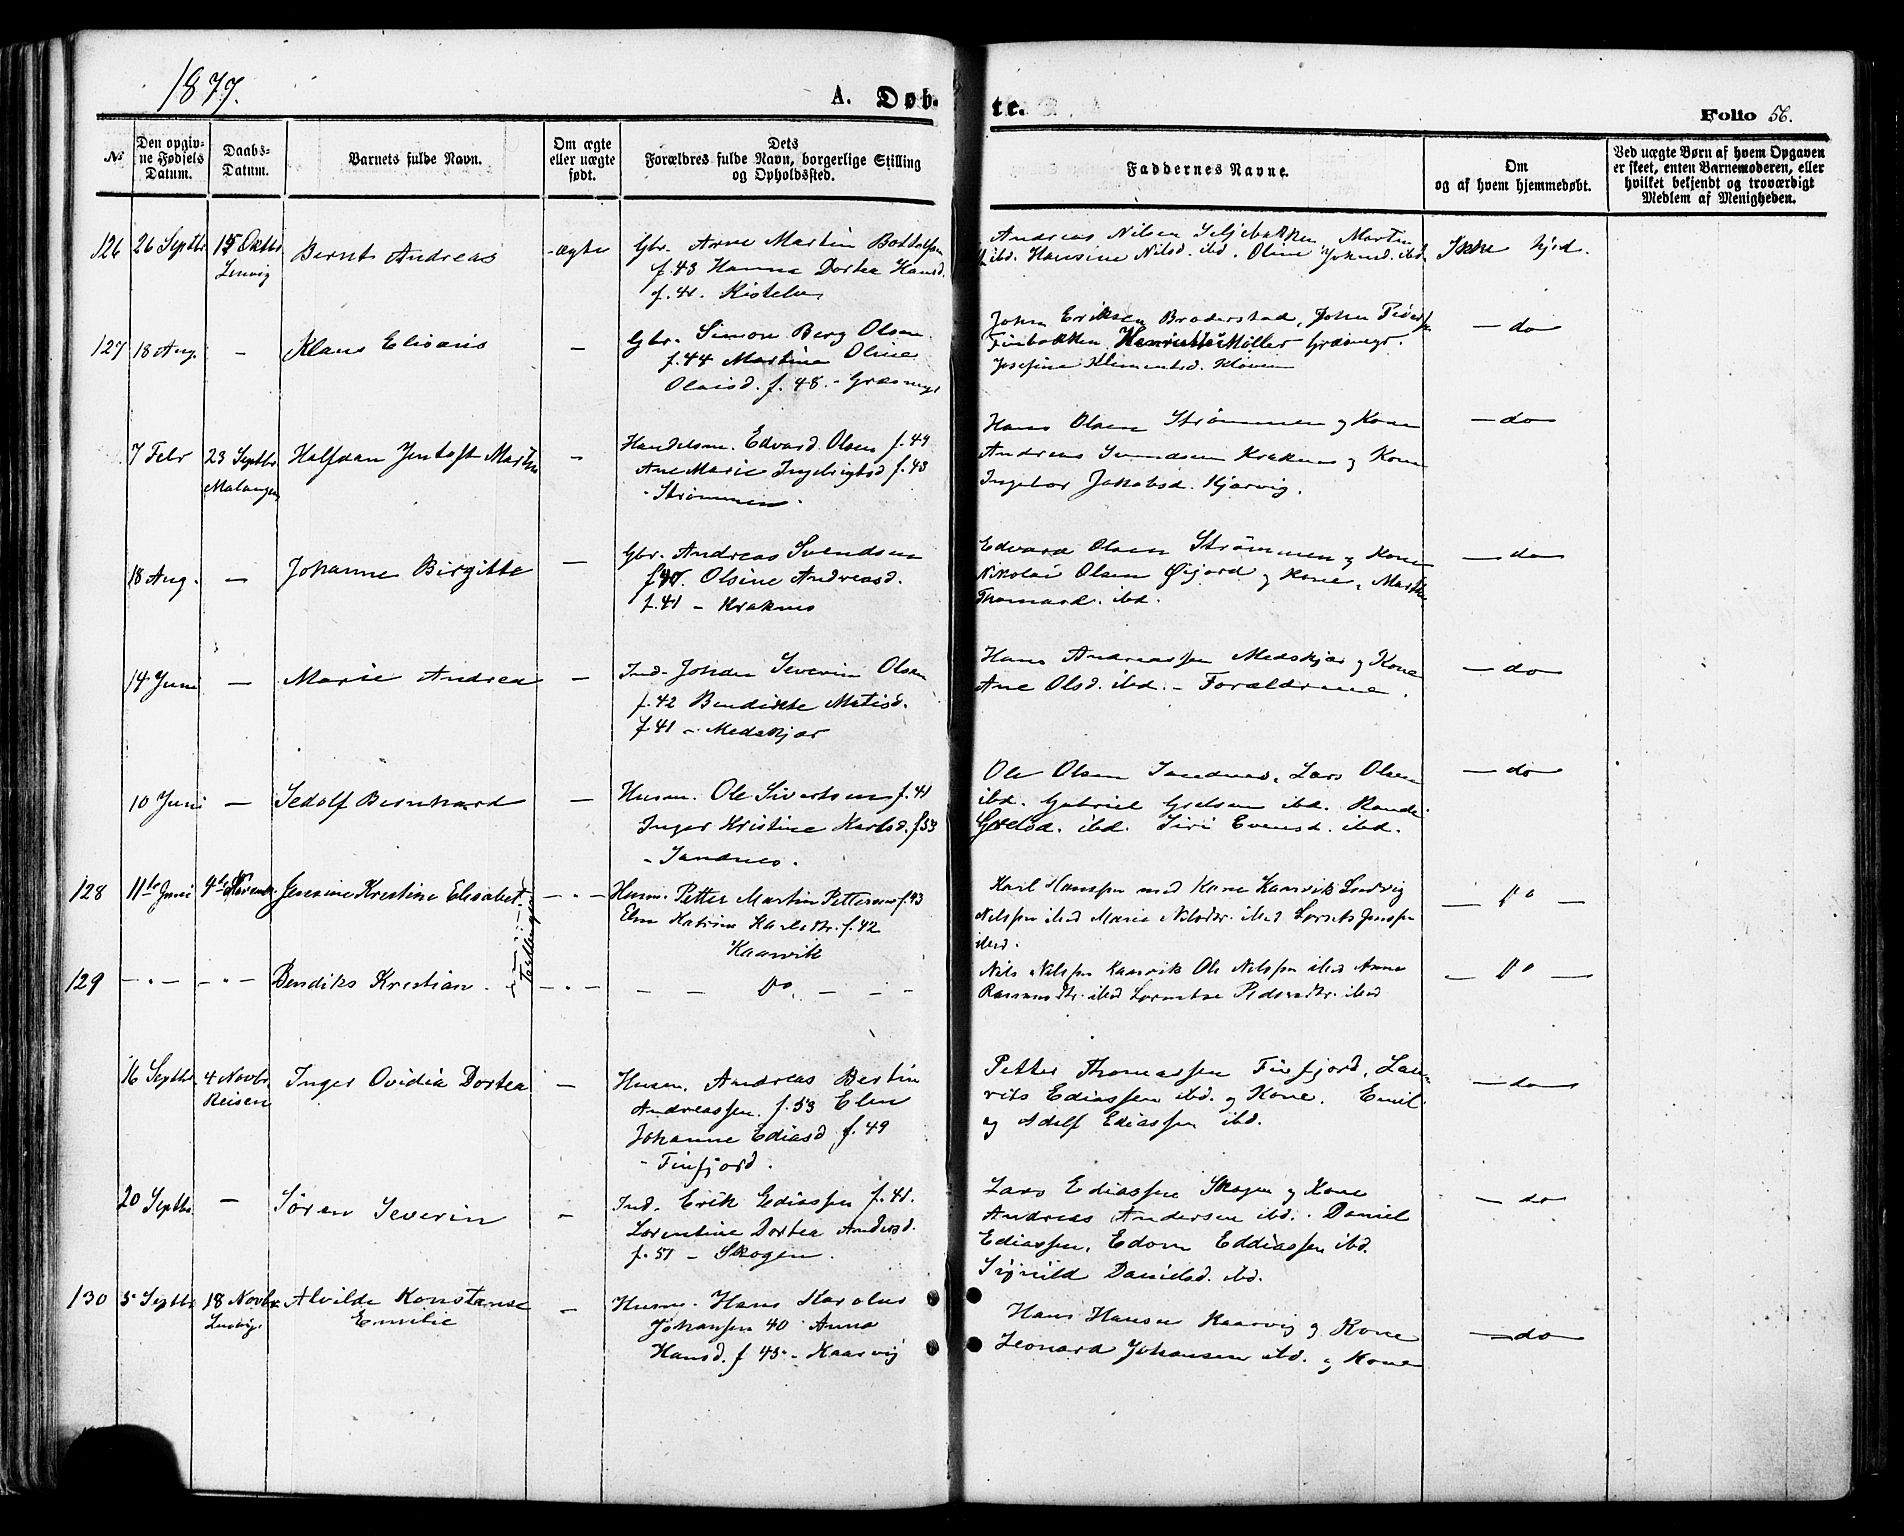 1877.
A. Døb-
te.
Folio 56.
№
Den opgiv-
ne Fødsels
Datum.
Daabs-
Datum.
Barnets fulde Navn.
Om ægte
eller uægte
født.
Dets
Forældres fulde Navn, borgerlige Stilling
og Opholdssted.
Faddernes Navne.
Om
og af hvem hjemmedøbt.
Ved uægte Børn af hvem Opgaven
er skeet, enten Barnemoderen, eller
hvilket bekjendt og troværdigt
Medlem af Menigheden.
126 26 Septbr 15 Oktbr Bernt Andreas ægte Gbr. Arne Martin Bottolfsen
Lenvig f. 43 Hanna Dortea Hansd.
f. 41.
Andreas Nilsen Seljebakken, Marten
ibd. Hansine Nilsd. ibd. Oline Johnsd. ibd.
Ikke hjd.
127 18 Aug. — Klaus Elisæus — Gbr. Simon Berg Olsen
f. 44 Martina Oline
Olaisd. f. 48. - Græsmyr
John Eriksen Broderstad, John
Finbakken, Henriette Møller Græsmyr.
Josefina Klimentsd. Kløven
— do
7 Febr 23 Septbr Halfdan Jentoft Martin — Handelsm. Edvard Olsen f. 49
Malangen Ane Marie Ingebrigtsd f. 43
- Strømmen.
Hans Olsen Strømmen og Kone
Andreas Svendsen Kraknes og Kone
Ingebor Jakobsd. Kjørvig.
— do —
18 Aug. — Johanne Birgitte — Gbr. Andreas Svendsen
f. 40. Olsine Andreasd.
f. 41 - Kraknes
Edvard Olsen Strømmen og Kone
Nikolai Olsen Øigord og Kone, Marthe
Thomasd. ibd.
— do —
14 Juni — Marie Andrea — Ind. Johan Severin Olsen
f. 42 Bendikte Matisd.
f. 41 - Medskjær
Hans Andreassen Medskjær og Kone
Ane Olsd. ibd. - Forældrene.
— do
10 Juni — Sedolf Bernhard — Husm. Ole Sivertsen f. 41
Inger Kristine Karlsd. f. 53
- Sandnes.
Ole Olsen Sandnes, Lars Olsen
ibd. Gabriel Grelsen ibd. Rande
Grelsd. ibd. Siri Evensd. ibd.
— do
128 11te Juni 4de Novemb. Jensine Kristine Elisabet — " — Husm. Petter Martin Pettersen f. 43
Elen Katrine Karlsdtr. f. 42
Kaarvik
Karl Hanssen med Kone Kaarvik Ludvig
Nilssen ibid Marie Nilsdtr. ibid Lorents Jenssen
ibid.
— Do —
Tvillinger
129 — " — — " — Bendiks Kristian. — " — — — Do. — —
Nils Nilssen Kaarvik Ole Nilssen ibid Anna
Rasmusdtr. ibid Lorentse Pedersdtr. ibid
— Do —
16 Septbr. 4 Novbr. Inger Ovidia Dortea — Husm. Andreas Bertin
Reisen Andreassen. f. 53 Elen
Johanne Ediasd f. 49
- Finfjord.
Petter Thomassen Finfjord, Lau-
rits Ediassen ibd. og Kone. Emil
og Adolf Ediassen ibd.
— do —
20 Septbr — Søren Severin — Ind. Erik Ediassen f. 41.
Lorentine Dortea Andersd.
f. 51 - Skogen.
Lars Ediassen Skogen og Kone
Andreas Andersen ibd. Daniel
Ediassen, Edom Eddiassen ibd.
Danielsd. ibd.
— do
130 5 Septbr 18 Novbr Alvilde Konstanse — Husm. Hans Karolus
Lenvig. Emilie Johansen 40 Anna
Hansd. f 45 - Kaarvig
Hans Hansen Kaarvig og Kone
Leonard Johansen ibd. og Kone
— do —